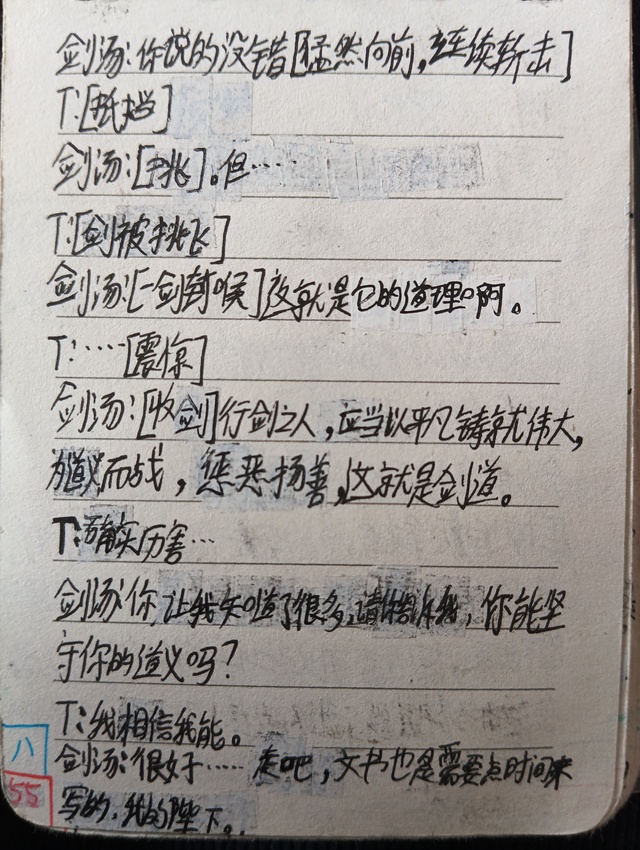 剑汤:你说的没错[猛然向前,连续斩击]
T:[抵挡]
剑汤:[挑]。但……
T:[剑被挑飞]
剑汤:[一剑封喉]这就是它的道理啊。
T:……[震惊]
剑汤:[收剑]行剑之人,应当以平凡铸就伟大,
为道义而战,惩恶扬善,这就是剑道。
T:确实厉害…
剑汤:你让我知道了很多,请告诉我,你能坚
守你的道义吗?
T:我相信我能。
八
剑汤:很好……走吧,文书也是需要点时间来
55
写的,我的陛下。